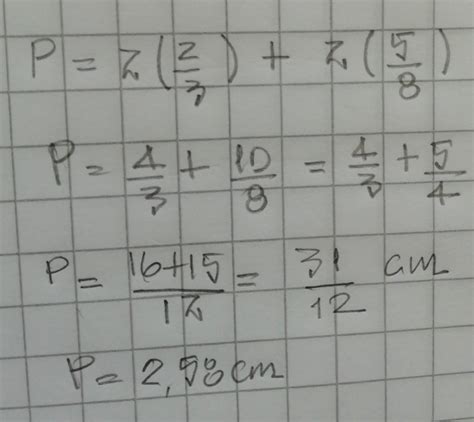 P = 2(2/3) + 2(5/8)
P = 4/3 + 10/8 = 4/3 + 5/4
P = 16+15/12 = 31/12 cm
P = 2,58 cm